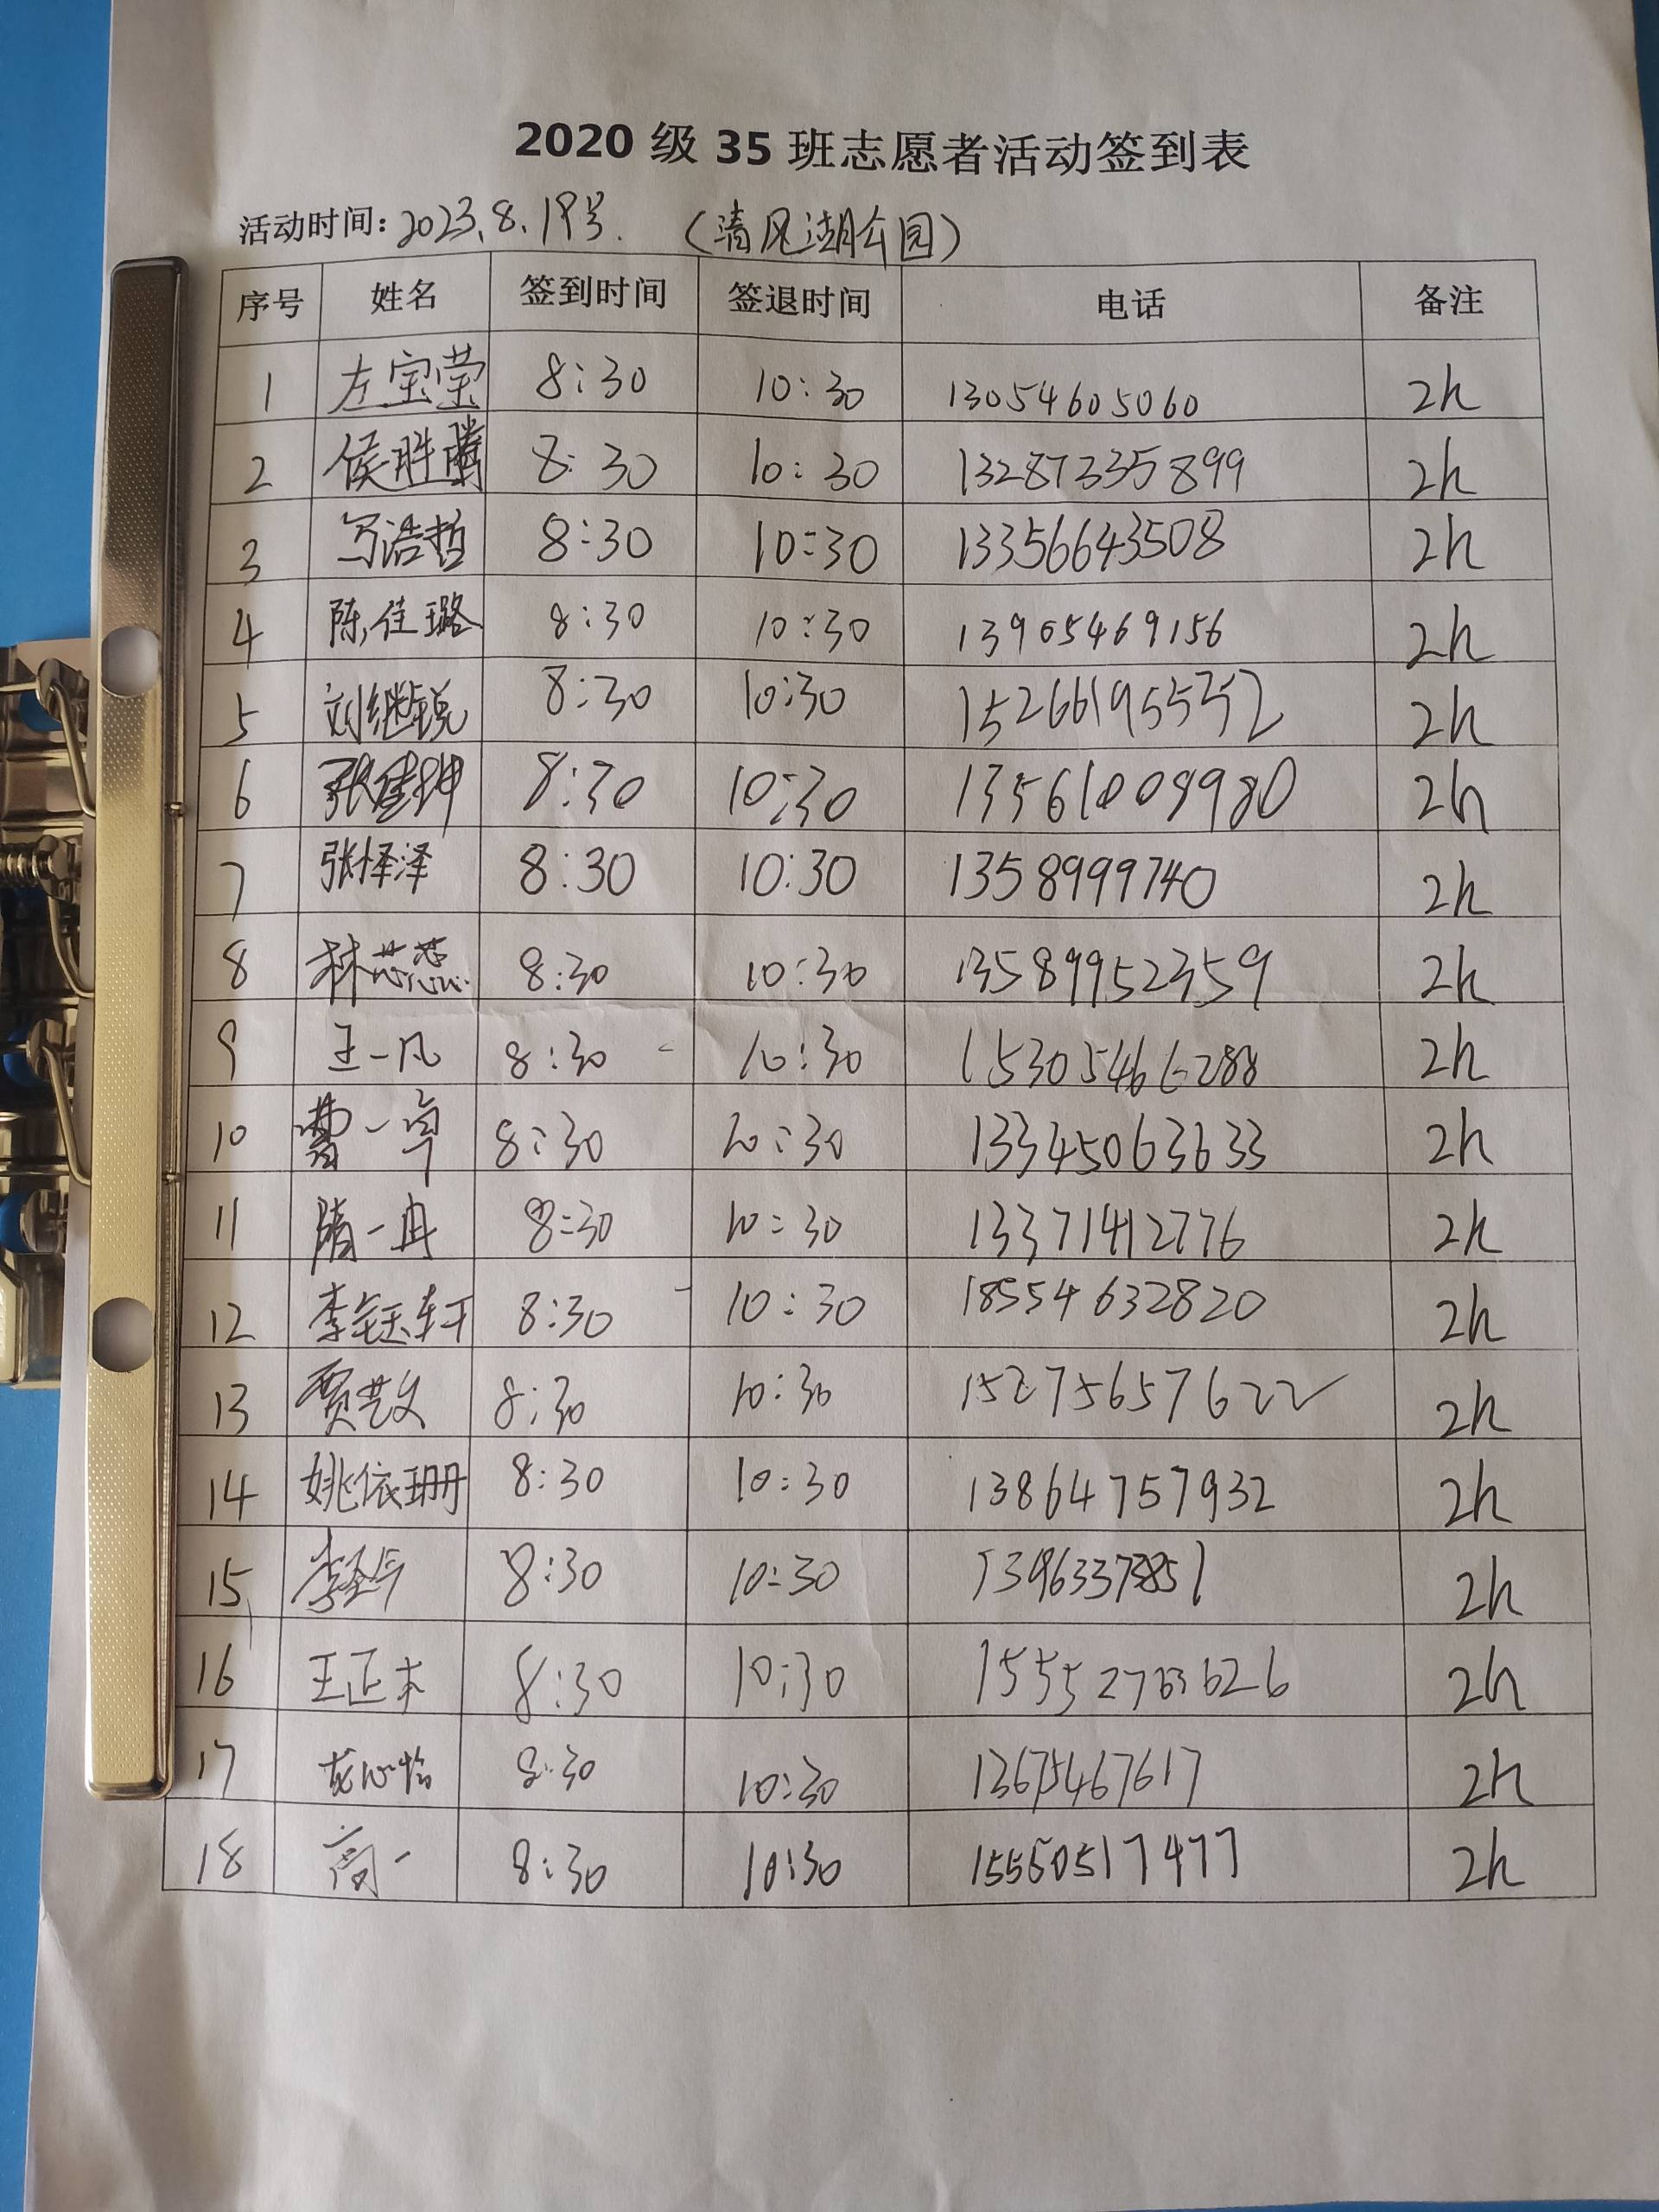 2020 级 35 班志愿者活动签到表
活动时间: 2023.8.19号. (清风湖公园)
序号 姓名 签到时间 签退时间 电话 备注
1 左宝莹 8:30 10:30 13054605060 2h
2 侯胜腾 8:30 10:30 13287335899 2h
3 浩哲 8:30 10:30 13356643508 2h
4 陈佳璐 8:30 10:30 13905469156 2h
5 刘继锐 8:30 10:30 2h
6 张佳坤 8:30 10:30 2h
7 张怿泽 8:30 10:30 1358999740 2h
8 林芯蕊 8:30 10:30 13589952359 2h
9 王一凡 8:30 10:30 15305466288 2h
10 曹一卓 8:30 10:30 13345063633 2h
11 隋一冉 8:30 10:30 13371412776 2h
12 李钰轩 8:30 10:30 18554632820 2h
13 贾艺文 8:30 10:30 15275657622 2h
14 姚依珊 8:30 10:30 13864757932 2h
15 李 8:30 10:30 2h
16 王正 8:30 10:30 2h
17 8:30 10:30 13675467617 2h
18 高一 8:30 10:30 15550517477 2h